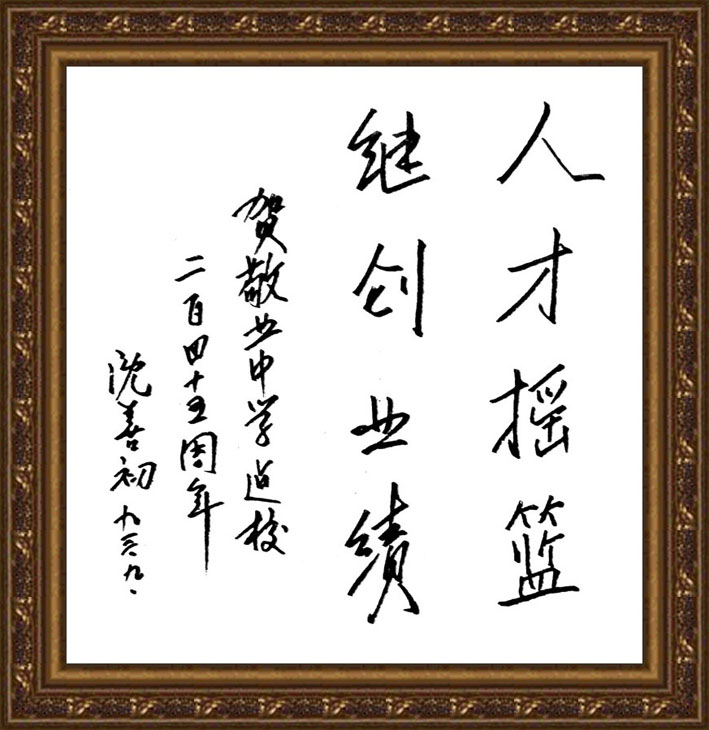 人才摇篮
继创业绩
贺敬业中学建校
二百四十五周年
善初 九三.九.